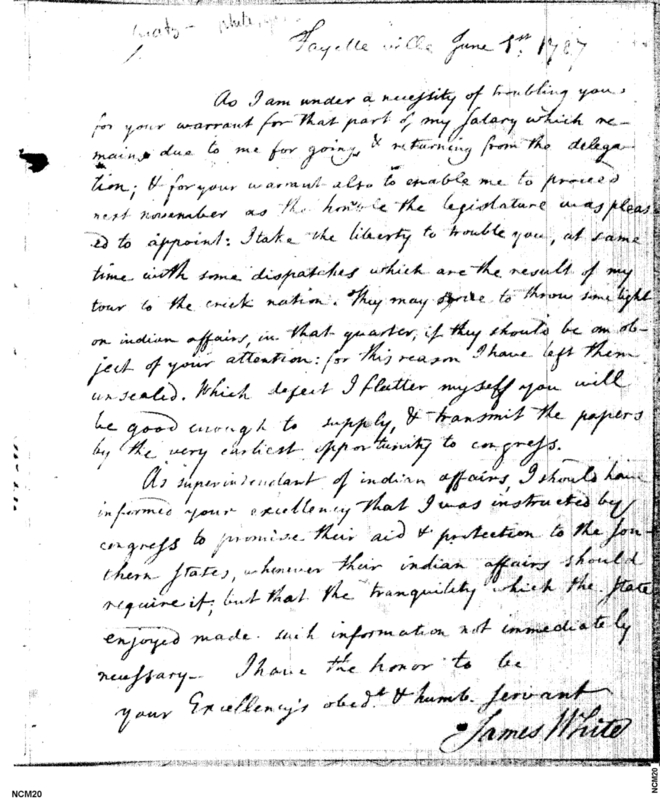 Fayette ville June 1st. 1787
As I am under a necessity of troubling you,
for your warrant for that part of my salary which re-
mains due to me for going & returning from the delega-
tion; & for your warrant also to enable me to proceed
next november as the honble the legislature was pleas
ed to appoint: I take the liberty to trouble you, at same
time with some dispatches which are the result of my
tour to the crick nation. They may serve to throw some light
on indian affairs, in that quarter, if they should be an ob-
ject of your attention: for this reason I have left them
unsealed. Which defect I flatter myself you will
be good enough to supply, & transmit the papers
by the very earliest opportunity to congress.
As superintendant of indian affairs, I should have
informed your excellency that I was instructed by
congress to promise their aid & protection to the sou-
thern states, whenever their indian affairs should
require it; but that the tranquility which the state
enjoyed made such information not immediately
necessary- I have the honor to be
your Excellency's obedt. & humb. servant
James White
NCM20
NCM20